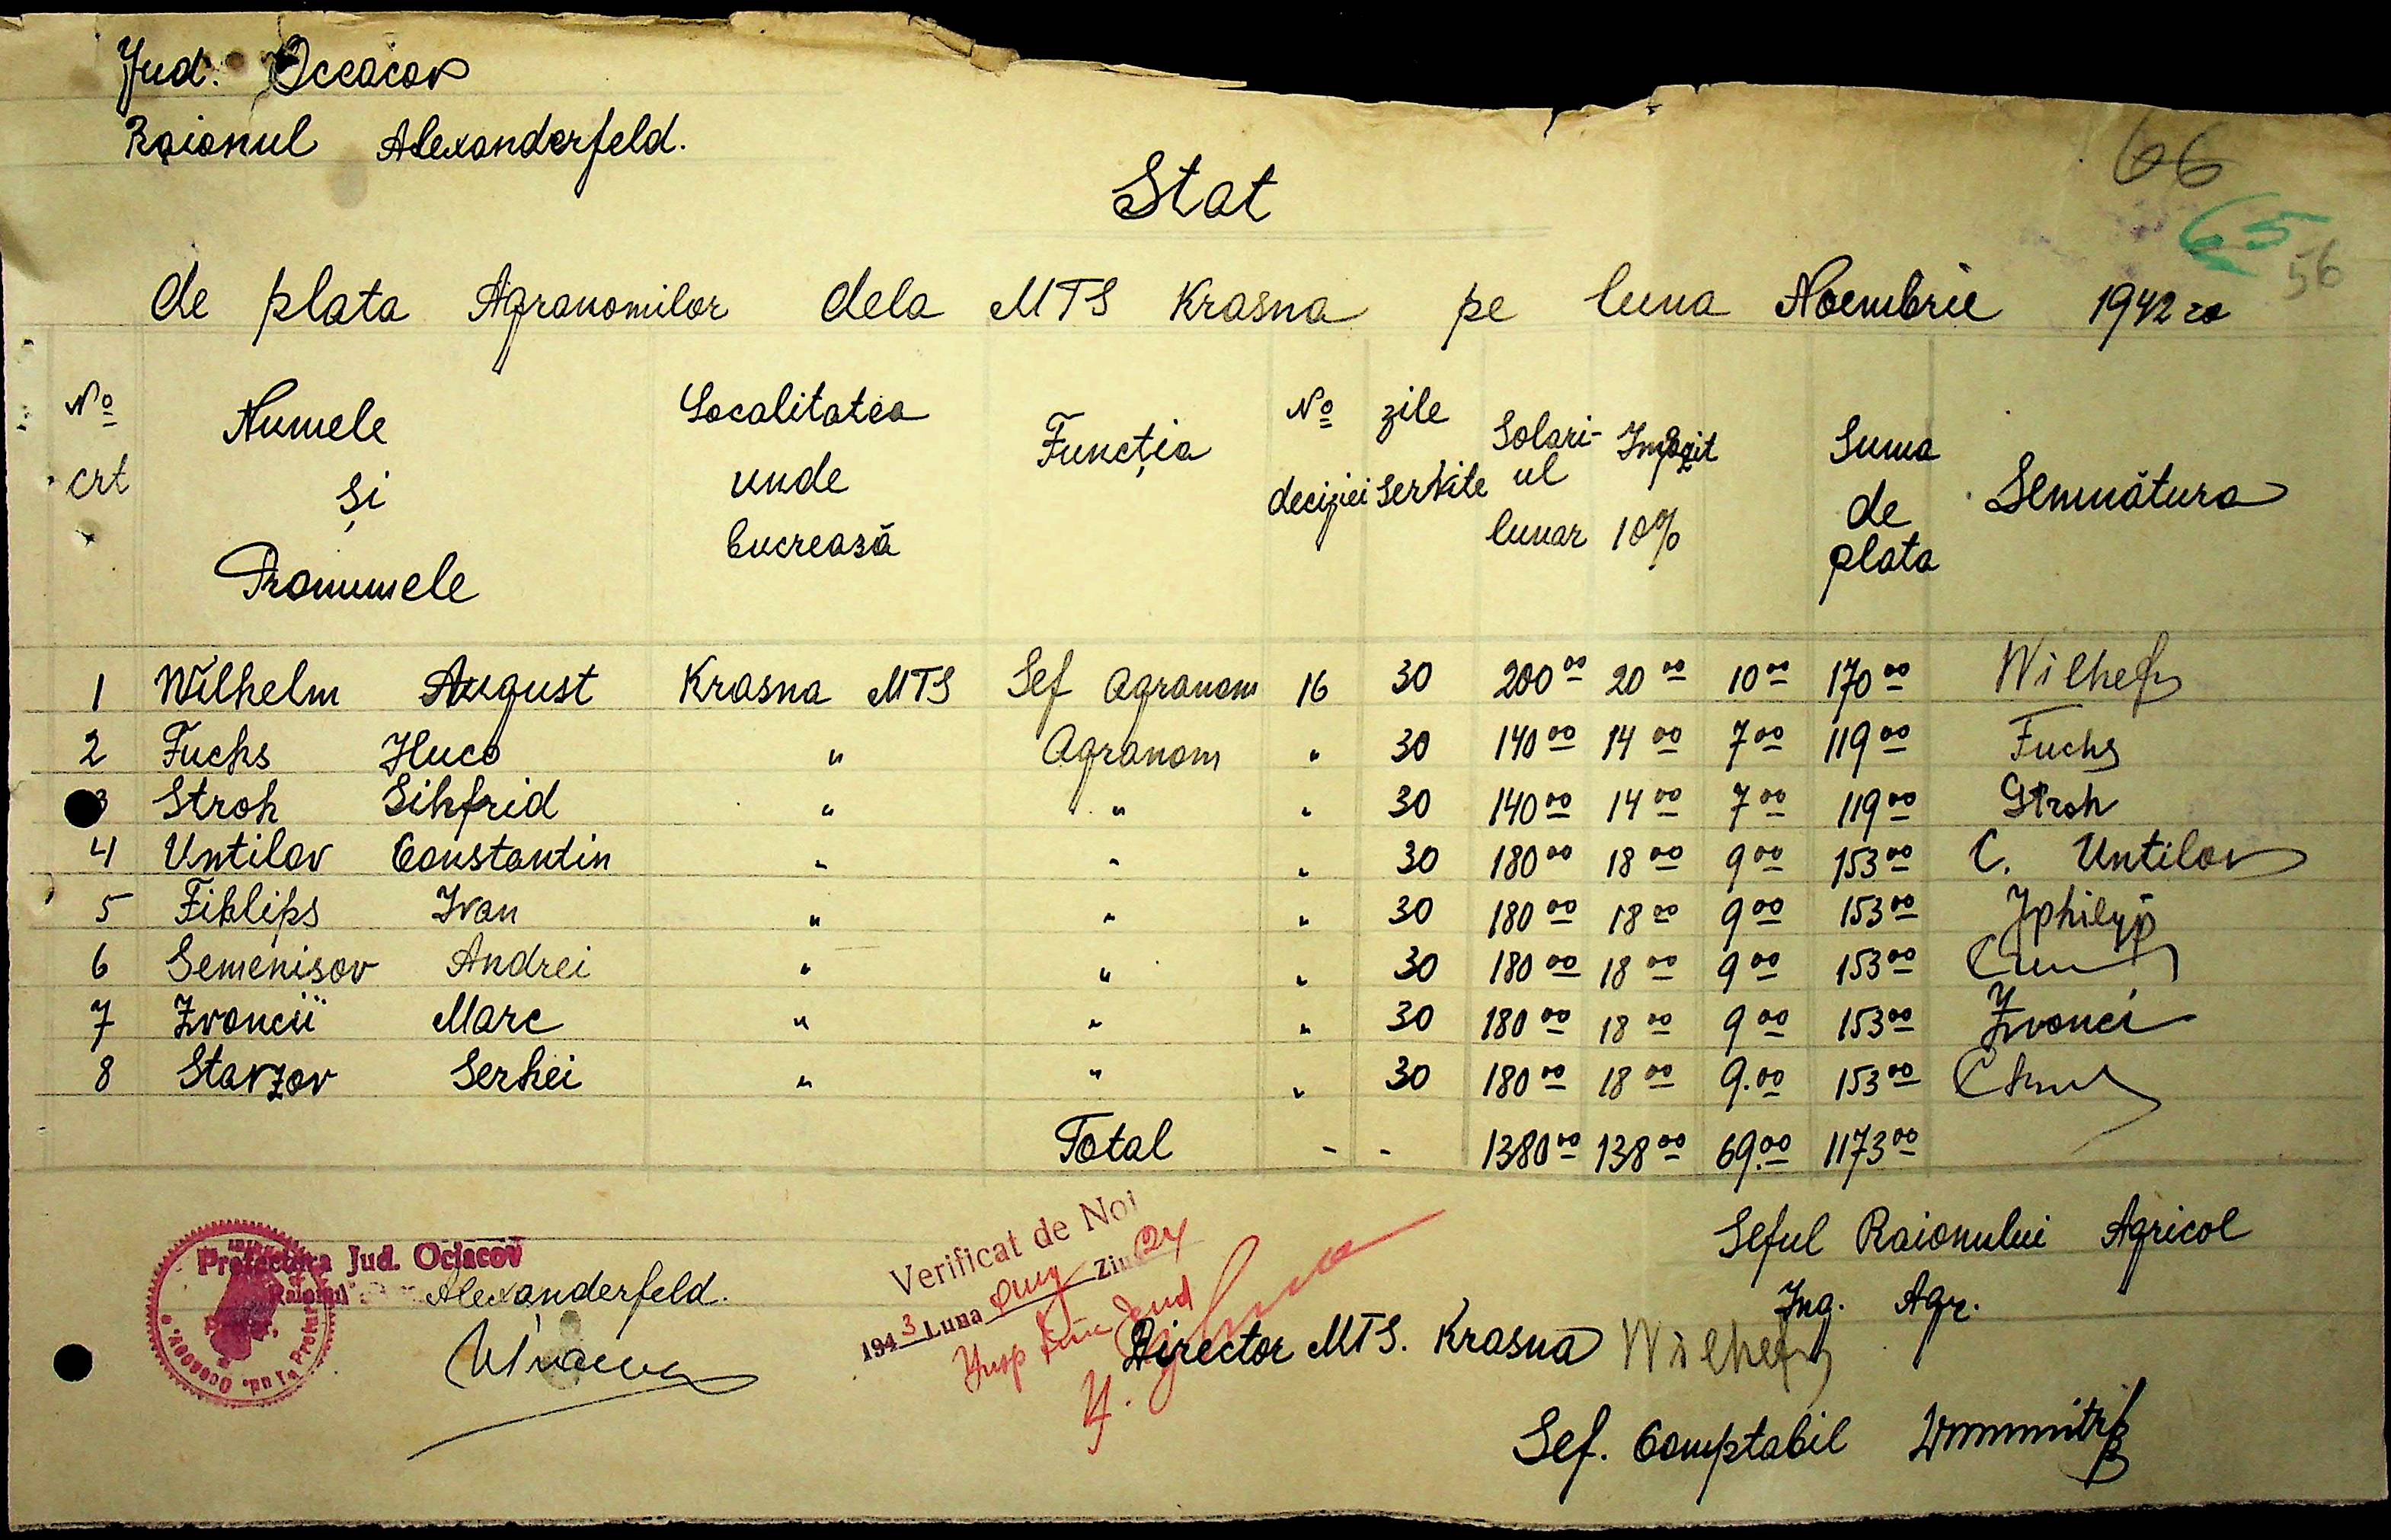 Jud. Oceacov
Raionul Alexanderfeld.
66
Stat
65
56
de plata Agranomilor dela MTS Krasna pe luna Noembrie 1942
№ crt Numele și Pronumele Localitatea unde lucrează Funcția № deciziei zile servite Solari-ul lunar Impozit 10% Suma de plata Semnătura
1 Wilhelm August Krasna MTS Sef Agranom 16 30 200 00 20 00 10 00 170 00 Wilhelm
2 Fuchs Huco " Agranom " 30 140 00 14 00 7 00 119 00 Fuchs
3 Stroh Sihfrid " " " 30 140 00 14 00 7 00 119 00 Stroh
4 Untilov Constantin " " " 30 180 00 18 00 9 00 153 00 C. Untilov
5 Fihlips Ivan " " " 30 180 00 18 00 9 00 153 00 Jphilyp
6 Semenisov Andrei " " " 30 180 00 18 00 9 00 153 00
7 Zvoncii Marc " " " 30 180 00 18 00 9 00 153 00 Zvonci
8 Starzov Serhei " " " 30 180 00 18 00 9.00 153 00
Total - - 1380 00 138 00 69.00 1173 00
Prefectura Jud. Ociacov
Raionul Alexanderfeld.
Verificat de Noi
1943 Luna Aug Ziua 24
Seful Raionului Agricol
Ing. Agr.
Director MTS. Krasna Wilhelm
Sef. Comptabil